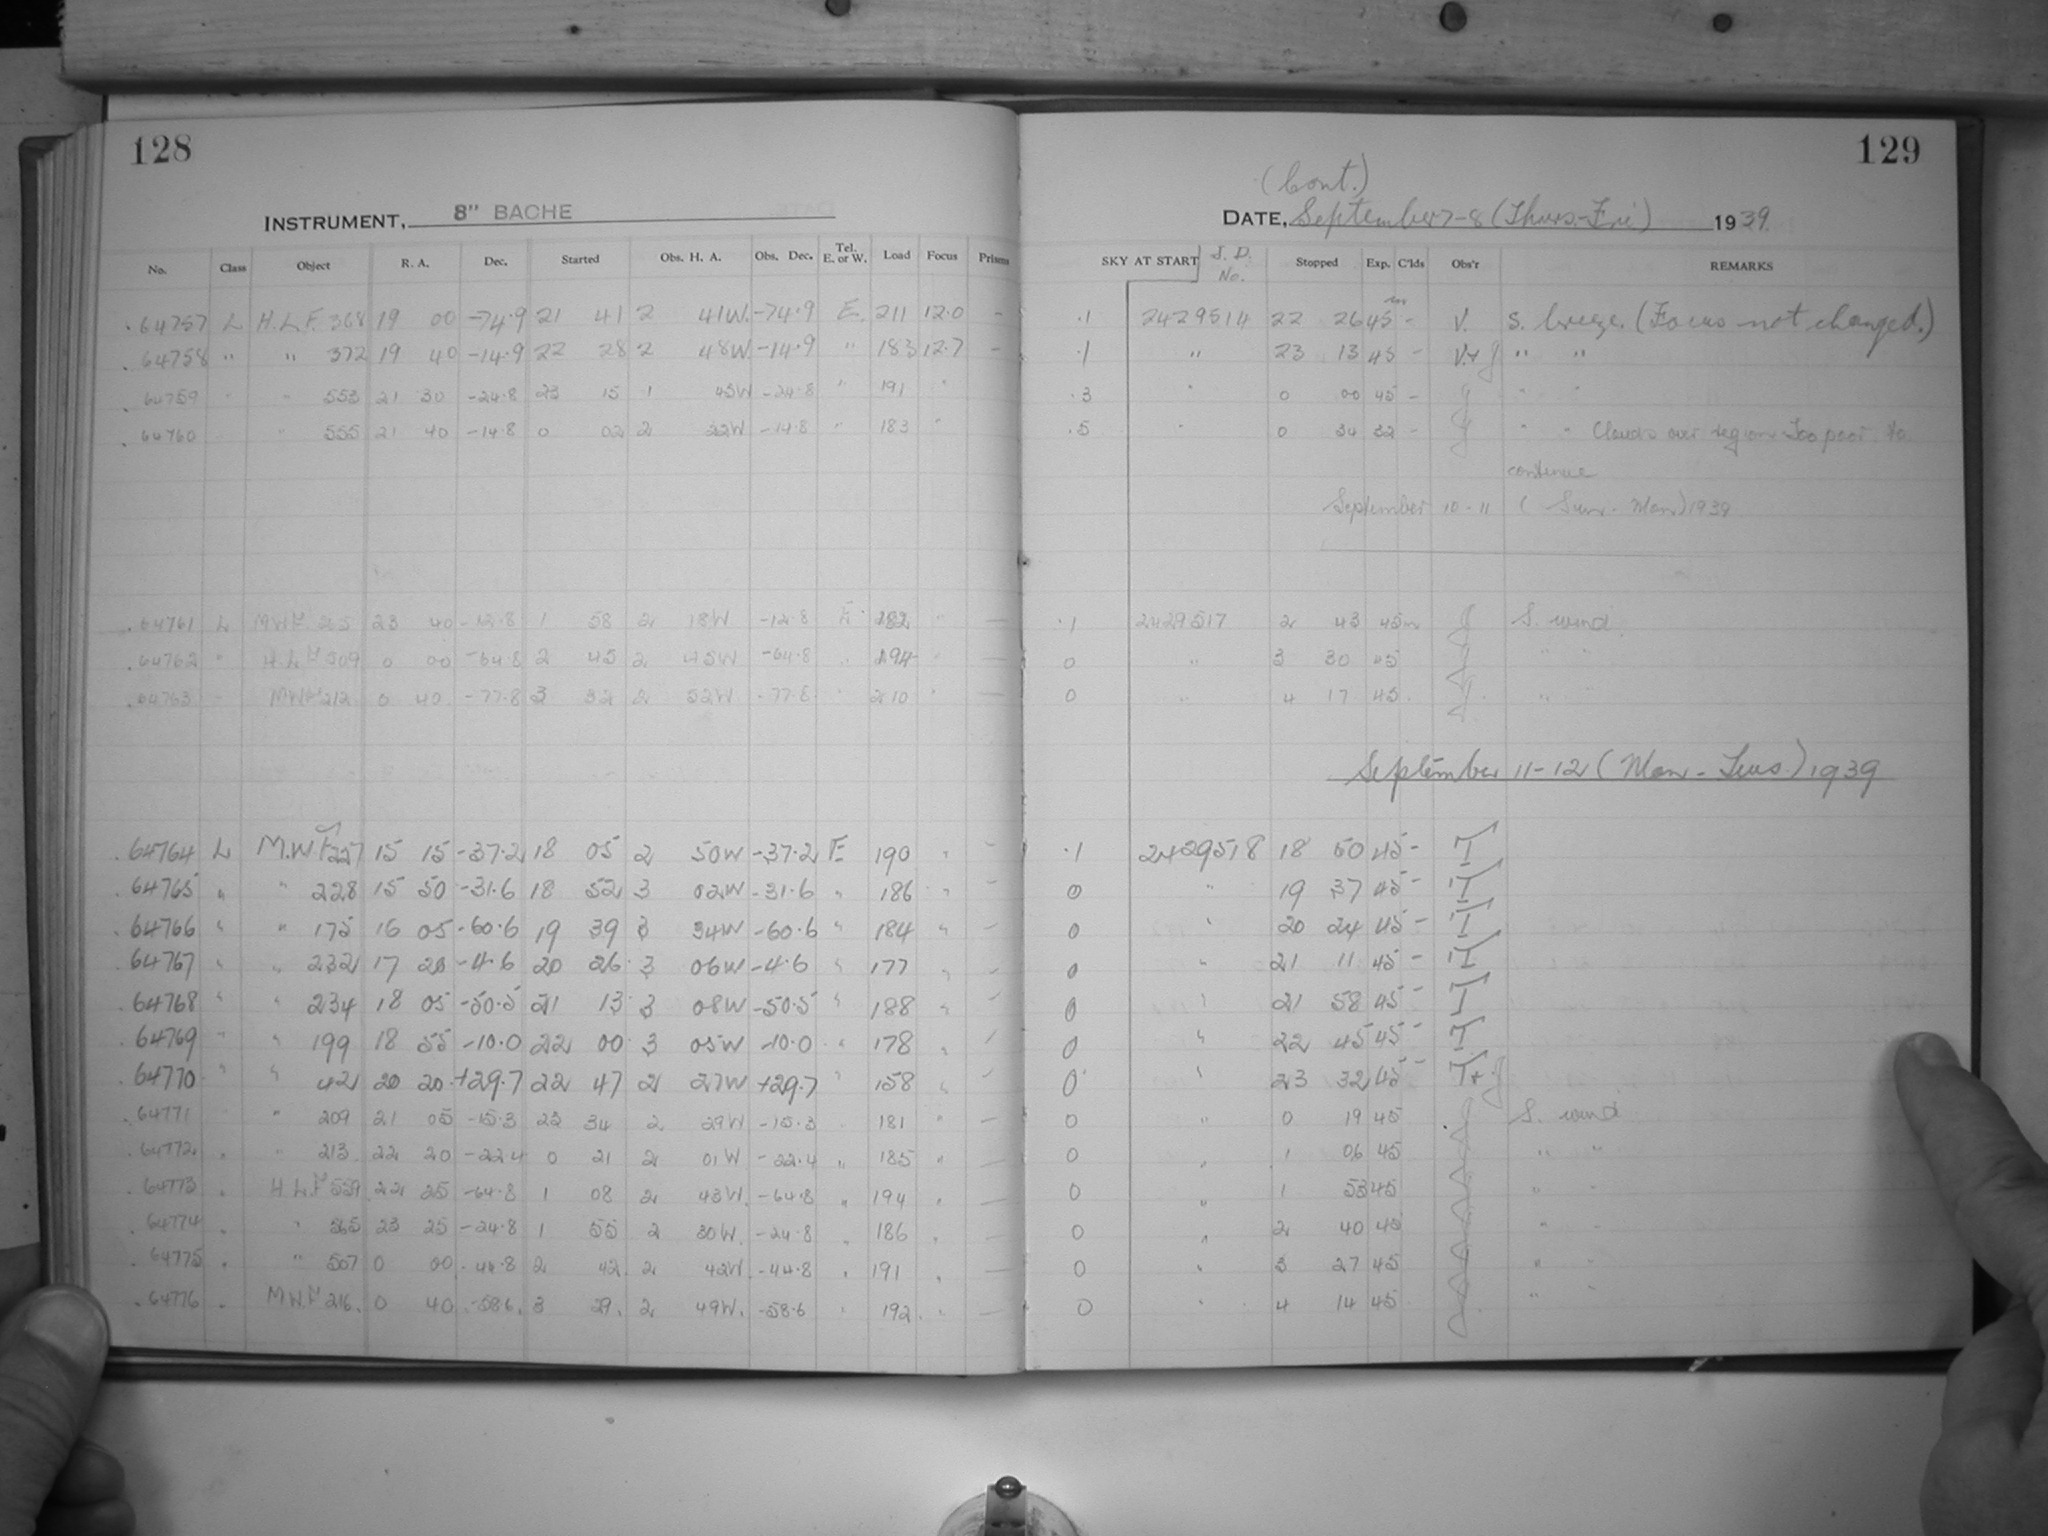 128
INSTRUMENT, 8" BACHE
No. Class Object R. A. Dec. Started Obs. H. A. Obs. Dec. Tel. E. or W. Load Focus Prisms
64757 L H.L.F. 368 19 00 -74.9 21 41 2 41W. -74.9 E. 211 12.0 -
64758 " " 372 19 40 -14.9 22 28 2 48W -14.9 " 183 12.7 -
64759 " " 553 21 30 -24.8 23 15 1 45W -24.8 " 191 "
64760 " 555 21 40 -14.8 0 02 2 22W -14.8 " 183 "
64761 L M.W.F. 205 23 40 -12.8 1 58 2 18W -12.8 E. 182 " -
64762 " H.L.F 509 0 00 -64.8 2 45 2 45W -64.8 " 194 " -
64763 - M.W.F 212 0 40 -77.8 3 32 2 52W -77.8 " 210 " -
64764 L M.W.F 227 15 15 -37.2 18 05 2 50W -37.2 E 190 " -
64765 " " 228 15 50 -31.6 18 52 3 02W -31.6 " 186 " -
64766 " " 175 16 05 -60.6 19 39 3 34W -60.6 " 184 " -
64767 " " 232 17 20 -4.6 20 26 3 06W -4.6 " 177 " -
64768 " " 234 18 05 -50.5 21 13 3 08W -50.5 " 188 " -
64769 " " 199 18 55 -10.0 22 00 3 05W -10.0 " 178 " -
64770 " " 42 20 20 +29.7 22 47 2 27W +29.7 " 158 " -
64771 " 209 21 05 -15.3 23 34 2 29W -15.3 " 181 " -
64772 " " 213 22 20 -22.4 0 21 2 01W -22.4 " 185 " -
64773 " H.L.F 559 22 25 -64.8 1 08 2 43W. -64.8 " 194 " -
64774 " " 565 23 25 -24.8 1 55 2 30W. -24.8 " 186 " -
64775 " " 507 0 00 -44.8 2 42 2 42W. -44.8 " 191 " -
64776 " M.W.F 216. 0 40 -58.6. 3 29. 2 49W. -58.6 " 192. " -
129
(Cont.)
DATE, September 7-8 (Thurs.-Fri) 1939
SKY AT START J. D. No. Stopped Exp. C'lds Obs'r REMARKS
.1 2429514 22 26 45 - V. S. breeze. (Focus not changed.)
.1 " 23 13 45 - V.+J " "
.3 " 0 00 45 - J " "
.5 " 0 34 32 - J " " Clouds over region Too poor to
continue
September 10-11 (Sun.-Mon) 1939
.1 2429517 2 43 45m J S. wind.
0 " 3 30 45 J " "
0 " 4 17 45 J " "
September 11-12 (Mon-Tues.) 1939
.1 2429518 18 50 45 - T
0 " 19 37 45 - T
0 " 20 24 45 - T
0 " 21 11 45 - T
0 " 21 58 45 - T
0 " 22 45 45 - T
0 " 23 32 45 - T+J
0 " 0 19 45 J S. wind
0 " 1 06 45 " "
0 " 1 53 45 " "
0 " 2 40 45 " "
0 " 3 27 45 " "
0 " 4 14 45 " "